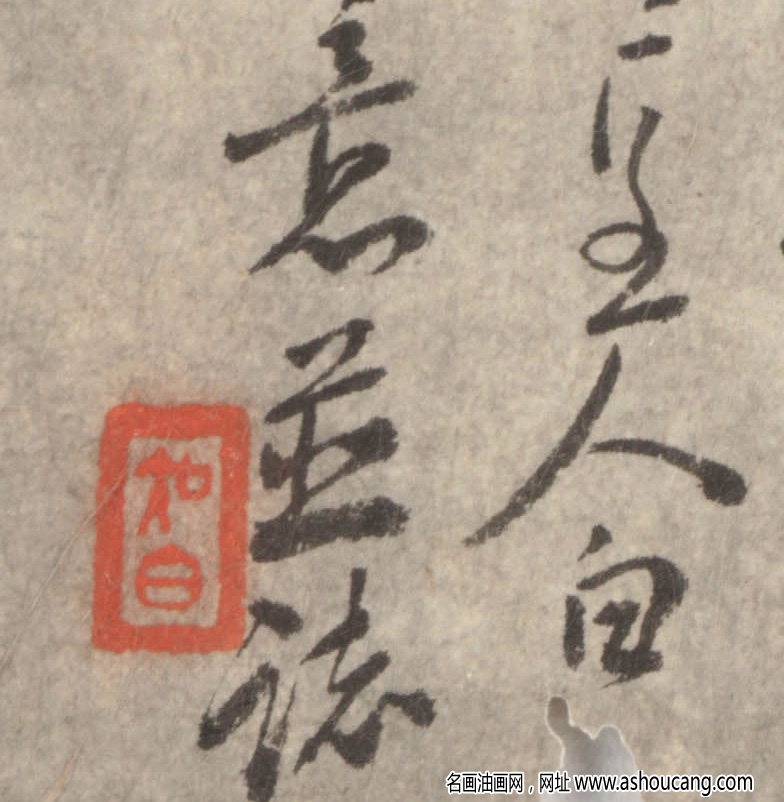 屋人自
意並誌
知白
名画油画网，网址 www.ashoucang.com